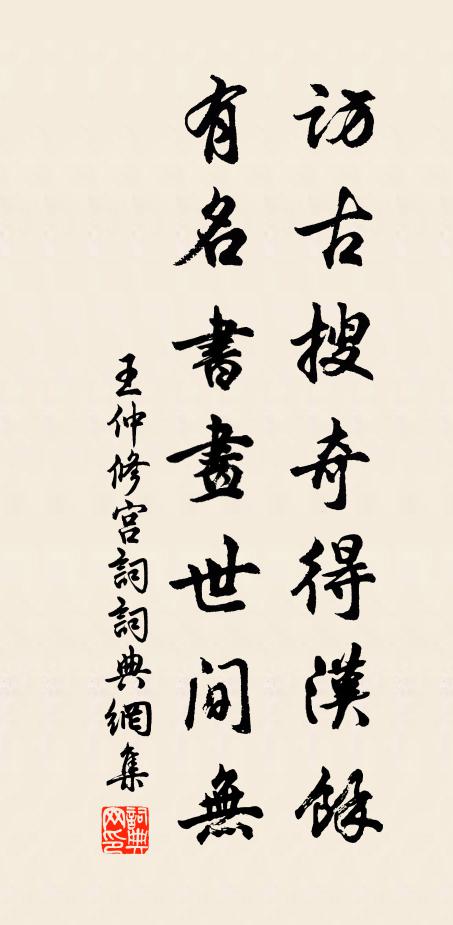 訪古搜奇得漢餘
有名書畫世間無
王仲修宮詞詞典網集
詞典网印